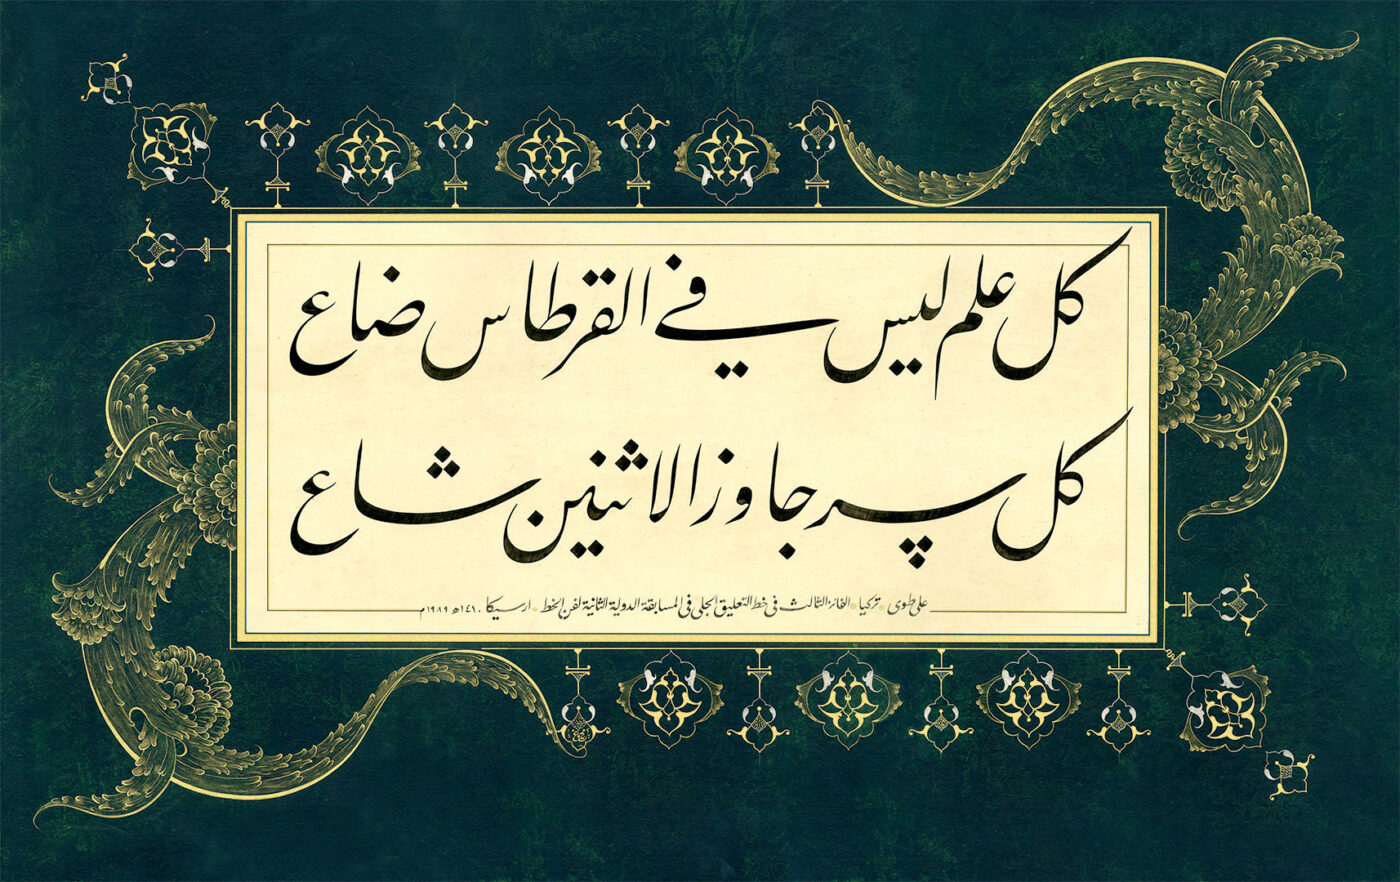 كل علم ليس في القرطاس ضاع
كل سر جاوز الاثنين شاع
على طوى * تركيا * الفائز الثالث في خط التعليق الجلى في المسابقة الدولية الثانية لفن الخط * ارسيكا ١٤١٠ھ ١٩٨٩م